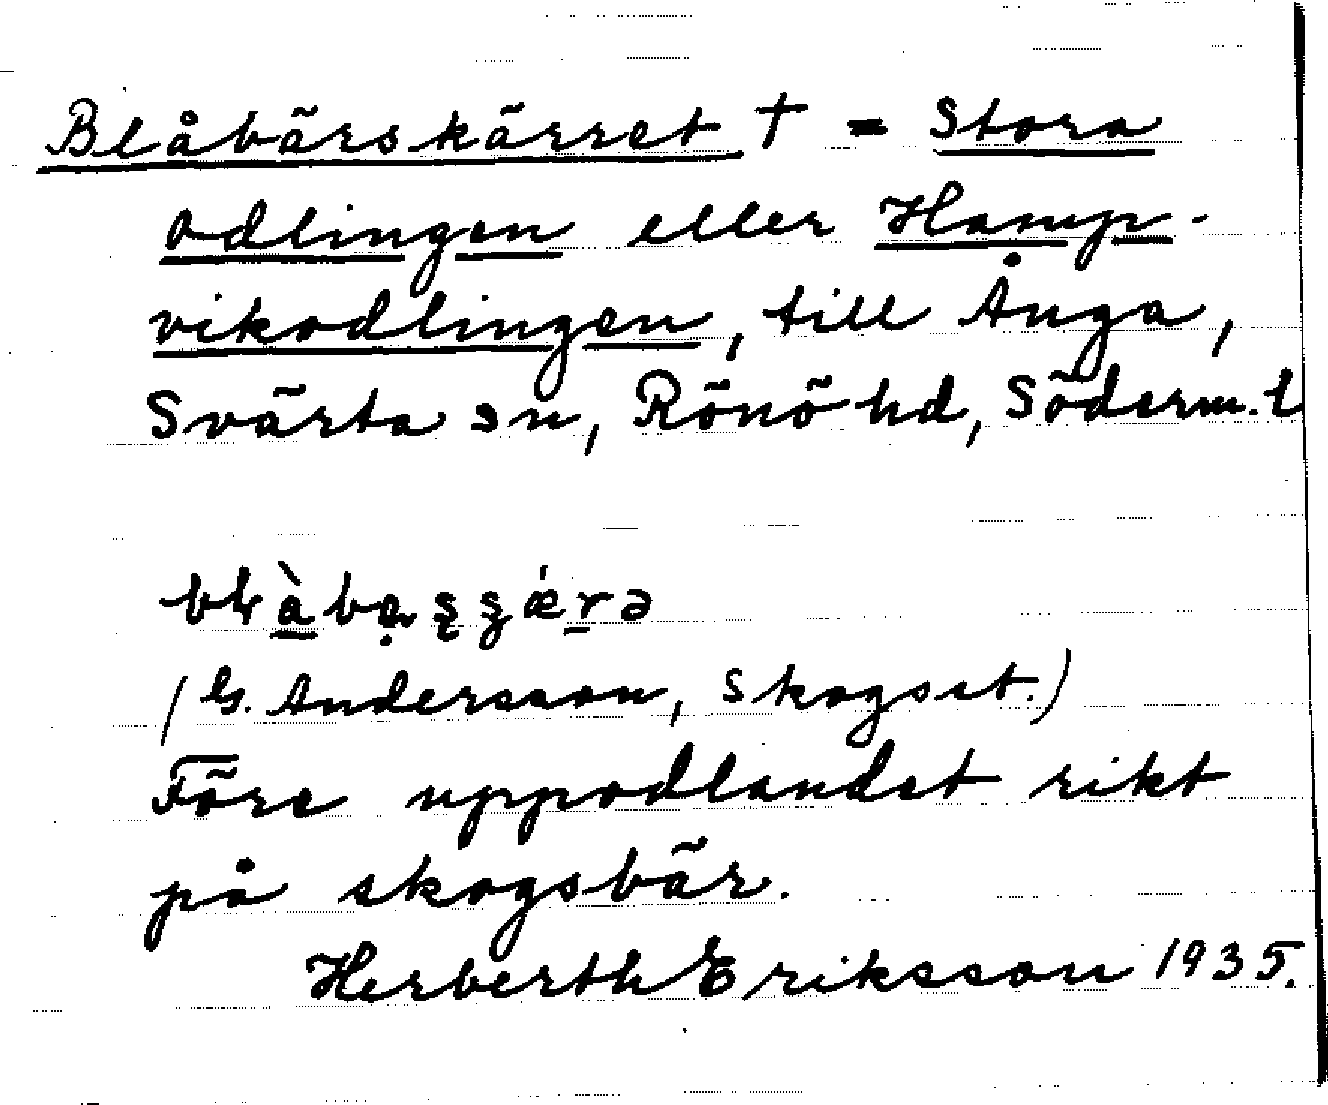 Blåbärskärret † = Stora
odlingen eller Hamp-
vikodlingen, till Ånga,
Svärta sn, Rönö hd, Söderm. l
(G. Andersson, Skogset.)
Före uppodlandet rikt
på skogsbär.
Herberth Eriksson 1935.